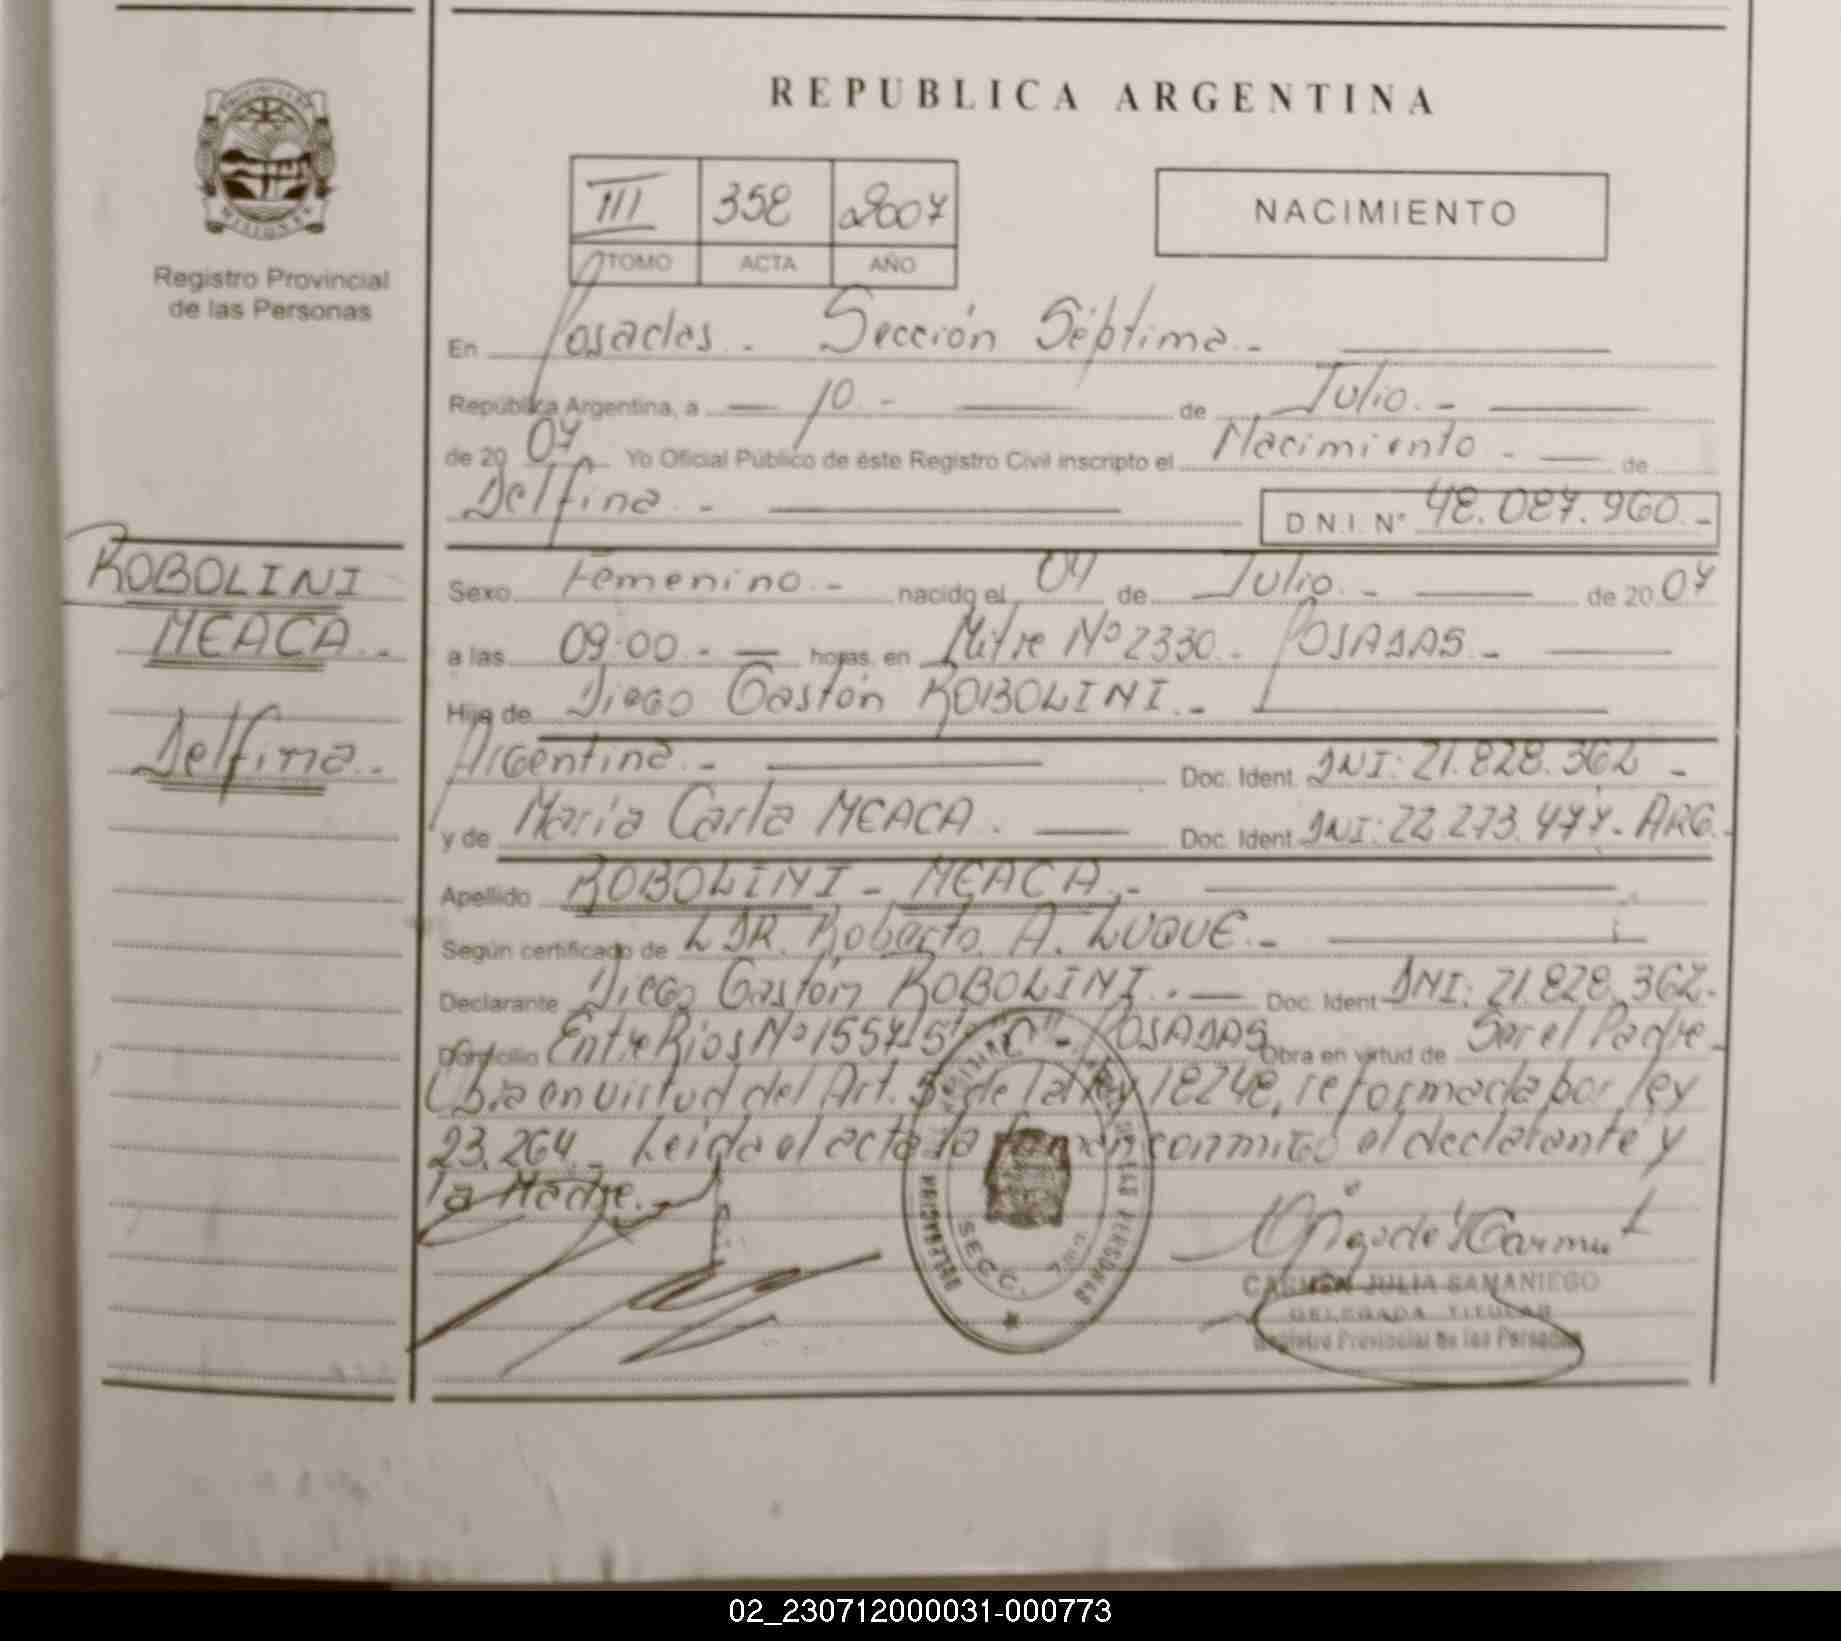 REPUBLICA ARGENTINA
III 358 2007
TOMO ACTA AÑO
NACIMIENTO
Registro Provincial
de las Personas
En Posadas.- Sección Séptima.-
República Argentina, a — 10.- — de Julio.- —
de 2007 Yo Oficial Público de éste Registro Civil inscripto el Nacimiento.- — de
Delfina.- — D.N.I. Nº 48.087.960.-
ROBOLINI
MEACA.-
Delfina.-
Sexo Femenino.- nacido el 04 de Julio.- — de 2007
a las 09:00.- — horas, en Mitre Nº 2330.- POSADAS.- —
Hijo de Diego Gastón ROBOLINI.- —
Argentina.- — Doc. Ident. DNI: 21.828.362 -
y de María Carla MEACA. — Doc. Ident. DNI: 22.273.477.- ARG.-
Apellido ROBOLINI - MEACA.- —
Según certificado de LDR. Roberto A. LUQUE.- —
Declarante Diego Gastón ROBOLINI.- — Doc. Ident DNI: 21.828.362.-
Domicilio Entre Ríos Nº 1554 "C" - POSADAS Obra en virtud de Ser el Padre.-
Obra en virtud del Art. de la ley 18248, reformada por ley
23.264.- Leida el acta la firman conmigo el declarante y
la Madre.-
DELEGACION LAS PERSONAS
SECC. 7ma.
CARMEN JULIA SAMANIEGO
DELEGADA TITULAR
Registro Provincial de las Personas
02_230712000031-000773